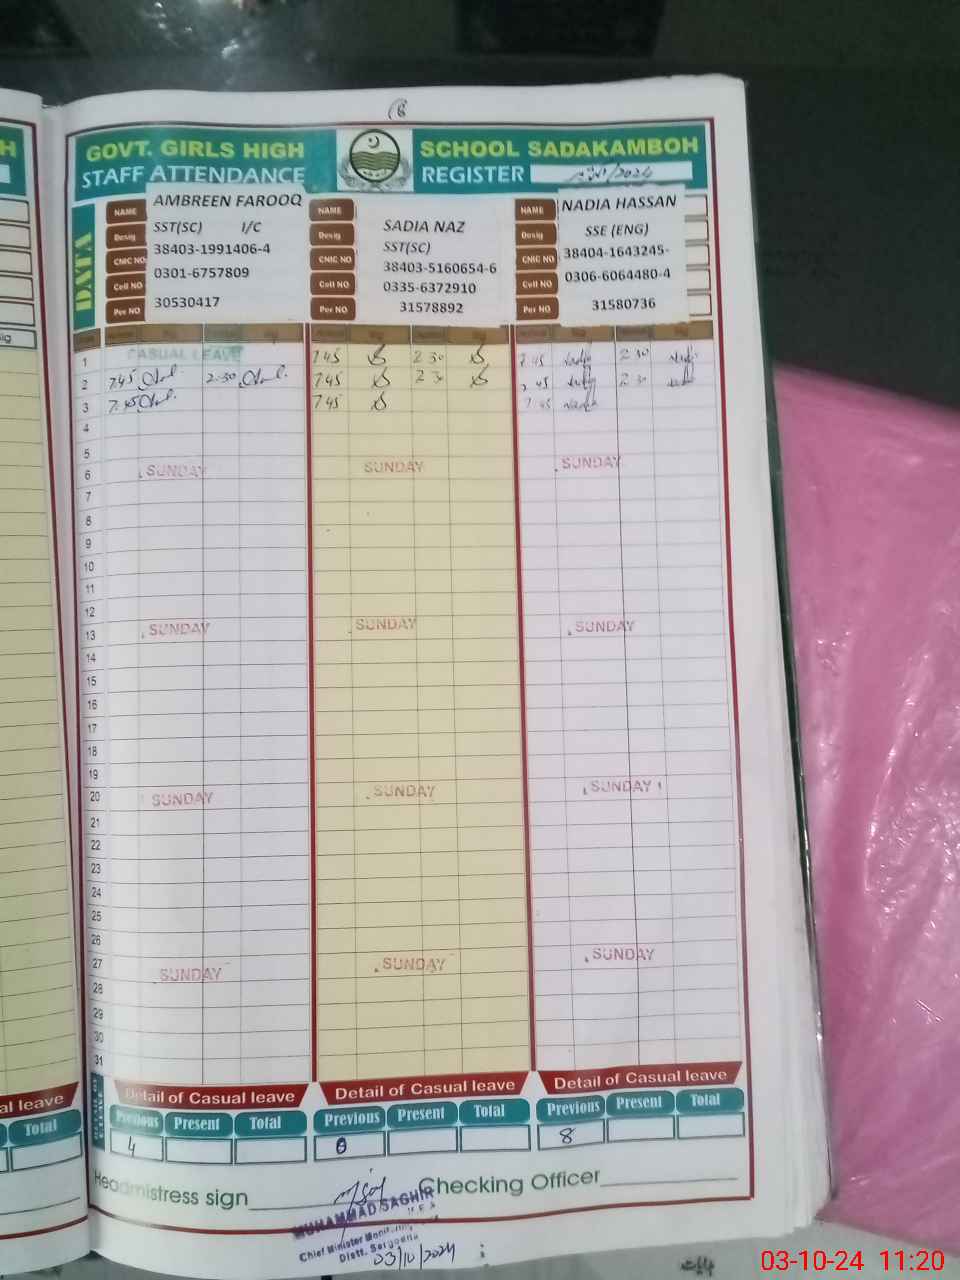 GOVT. GIRLS HIGH SCHOOL SADAKAMBOH
STAFF ATTENDANCE REGISTER /2024
DATA
NAME AMBREEN FAROOQ
Desig SST(SC) I/C
CNIC NO: 38403-1991406-4
Cell NO 0301-6757809
Per NO 30530417
NAME SADIA NAZ
Desig SST(SC)
CNIC NO 38403-5160654-6
Cell NO 0335-6372910
Per NO 31578892
NAME NADIA HASSAN
Desig SSE (ENG)
CNIC NO 38404-1643245-
Cell NO 0306-6064480-4
Per NO 31580736
1 CASUAL LEAVE 7 45 2 30 7 45 2 30
2 7.45 2.30 7 45 2 3 7 45 2 30
3 7.45 7 45 7 45
4
5
6 SUNDAY SUNDAY SUNDAY
7
8
9
10
11
12
13 SUNDAY SUNDAY SUNDAY
14
15
16
17
18
19
20 SUNDAY SUNDAY SUNDAY
21
22
23
24
25
26
27 SUNDAY SUNDAY SUNDAY
28
29
30
31
al leave
Total
Detail of Casual leave Detail of Casual leave Detail of Casual leave
Previous Present Total Previous Present Total Previous Present Total
4 0 8
Headmistress sign Checking Officer
MUHAMMAD SAGHIR
Chief Minister
Distt. Sargodha
03/10/2024
03-10-24 11:20